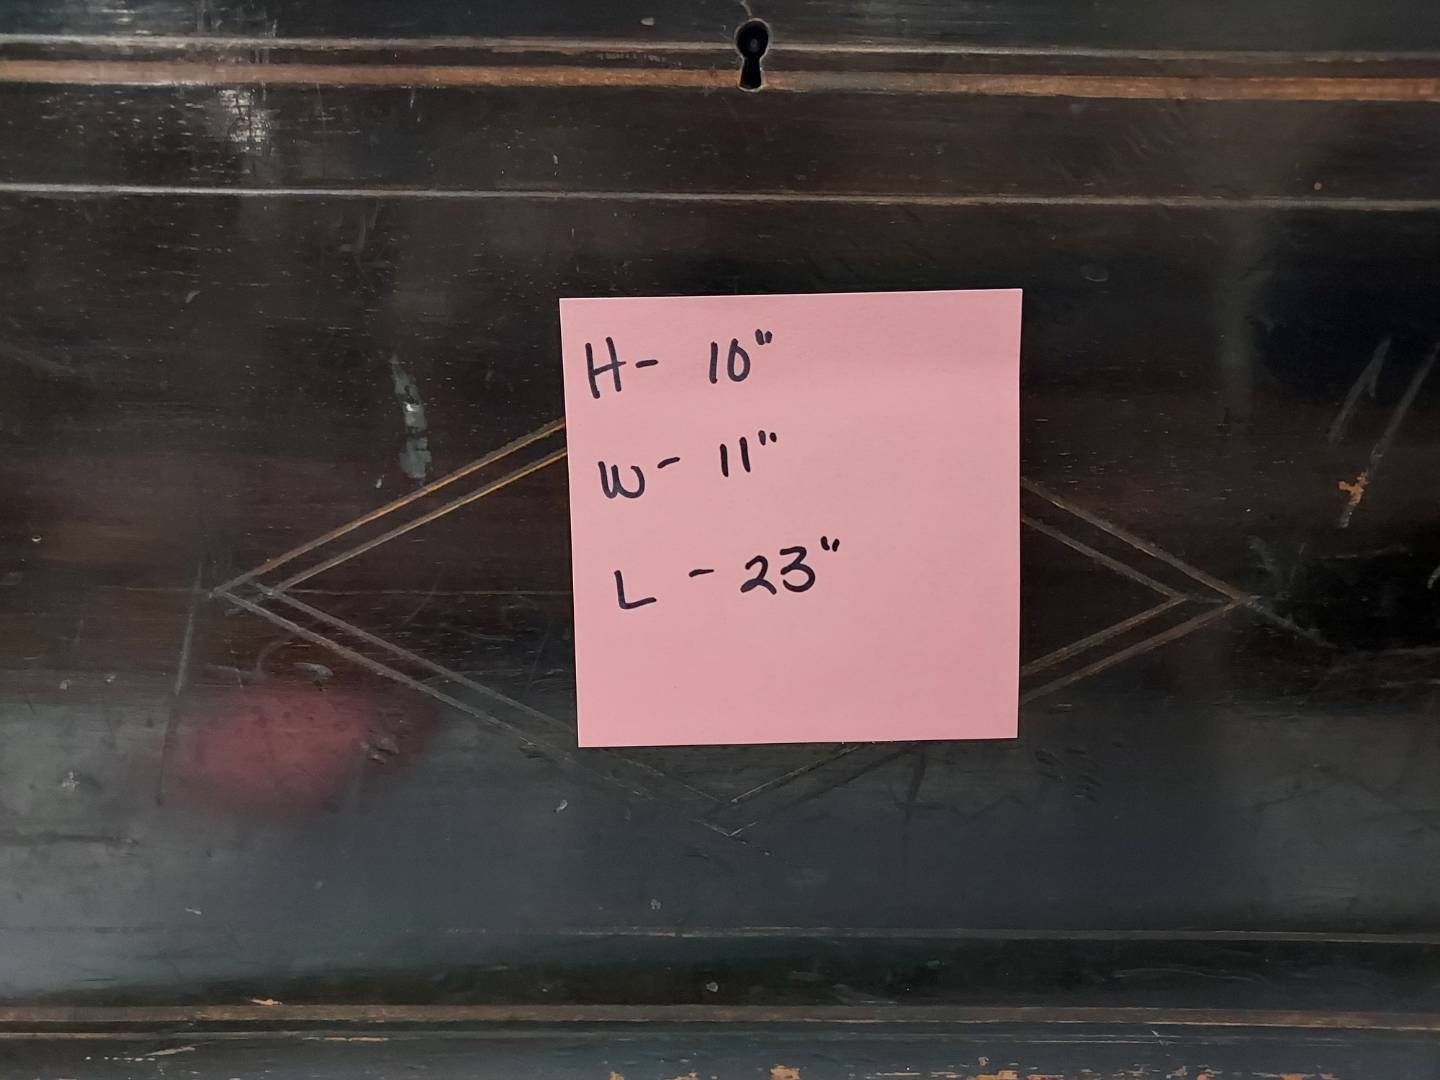 H- 10"
W- 11"
L - 23"